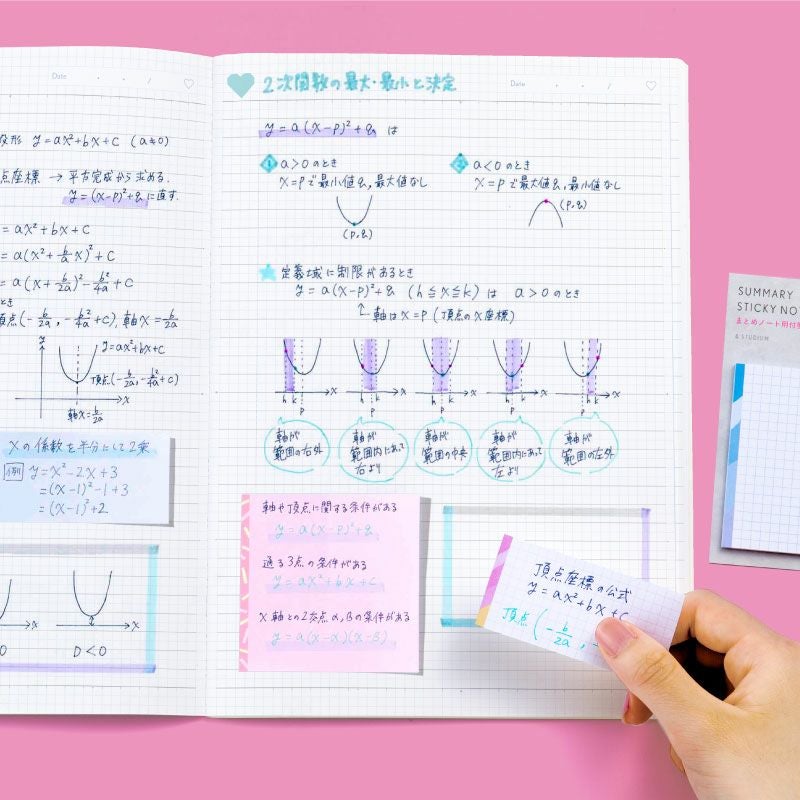 Date
変形 y=ax²+bx+c (a≠0)
点座標 → 平方完成から求める.
y=(x-p)²+q に直す.
=ax²+bx+c
=a(x²+b/a x)²+c
=a(x+b/2a)²-b²/4a+c
とき
頂点(-b/2a, -b²/4a+c), 軸x=b/2a
y
y=ax²+bx+c
頂点(-b/2a, -b²/4a+c)
x
軸x=b/2a
xの係数を半分にして2乗
例 y=x²-2x+3
=(x-1)²-1+3
=(x-1)²+2
x x
0 D<0
2次関数の最大・最小と決定
Date
y=a(x-p)²+q は
1 a>0のとき
x=pで最小値q,最大値なし
(p,q)
2 a<0のとき
x=pで最大値q,最小値なし
(p,q)
定義域に制限があるとき
y=a(x-p)²+q (h≦x≦k) は a>0のとき
↑軸はx=p(頂点のx座標)
h k p x
h k p x
h k p x
h k p x
h k p x
軸が
範囲の右外
軸が
範囲内にあって
右より
軸が
範囲の中央
軸が
範囲内にあって
左より
軸が
範囲の左外
軸や頂点に関する条件がある
y=a(x-p)²+q
通る3点の条件がある
y=ax²+bx+c
x軸との2交点α,βの条件がある
y=a(x-α)(x-β)
頂点座標の公式
y=ax²+bx+c
頂点(-b/2a, -
SUMMARY
STICKY NO
まとめノート用付箋
& STUDIUM